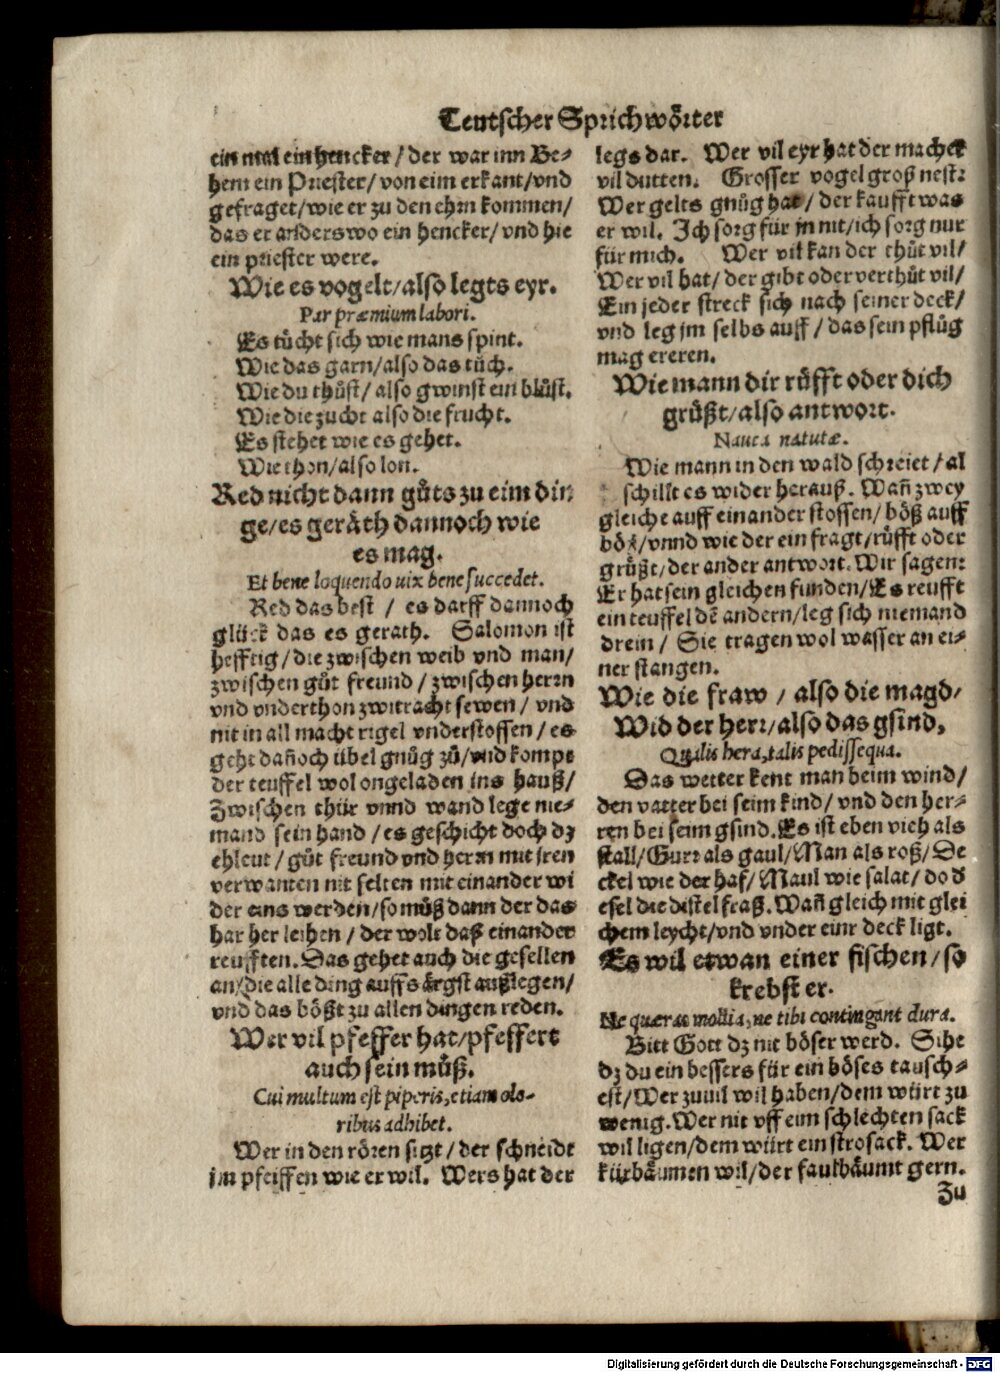 Teutscher Sprichwoͤrter
ein mal ein hencker / der war inn Be⸗
hem ein Priester / von eim erkant / vnd
gefraget / wie er zu den ehrn kommen /
das er anderswo ein hencker / vnd hie
ein priester were.
Wie es vogelt / also legts eyr.
Par præmium labori.
Es tuͦcht sich wie mans spint.
Wie das garn / also das tuͦch.
Wie du thuͦst / also gwinst ein bluͦst.
Wie die zucht also die frucht.
Es stehet wie es gehet.
Wie thon / also lon.
Red nicht dann guͦts zu eim din
ge / es geraͤth dannoch wie
es mag.
Et bene loquendo uix bene succedet.
Red das best / es darff dannoch
gluͤck das es gerath. Salomon ist
hefftig / die zwischen weib vnd man /
zwischen guͦt freund / zwischen herrn
vnd vnderthon zwitracht sewen / vnd
nit in all macht rigel vnderstossen / es
geht dañoch uͤbel gnuͦg zuͦ / vnd kompt
der teuffel wol ongeladen ins hauß /
Zwischen thuͤr vnnd wand lege nie⸗
mand sein hand / es geschicht doch dz
ehleut / guͦt freund vnd herrn mit jren
verwanten nit selten mit einander wi
der eins werden / so muͦß dann der das
har her leihen / der wolt daß einander
reufften. Das gehet auch die gesellen
an / die alle ding auffs aͤrgst außlegen /
vnd das boͤßt zu allen dingen reden.
Wer vil pfeffer hat / pfeffert
auch sein muͦß.
Cui multum est piperis, etiam ole-
ribus adhibet.
Wer in den roͤren sitzt / der schneidt
jm pfeiffen wie er wil. Wers hat der
legs dar. Wer vil eyr hat der machet
vil dutten. Grosser vogel groß nest:
Wer gelts gnuͦg hat / der kaufft was
er wil. Ich sorg fuͤr jn nit / ich sorg nur
fuͤr mich. Wer vil kan der thuͦt vil /
Wer vil hat / der gibt oder verthuͦt vil /
Ein jeder streck sich nach seiner deck /
vnd leg jm selbs auff / das sein pfluͦg
mag ereren.
Wie mann dir ruͤfft oder dich
gruͤßt / also antwort.
Wie mann in den wald schreiet / al
schillt es wider herauß. Wañ zwey
gleiche auff einander stossen / boͤß auff
boͤß / vnnd wie der ein fragt / ruͤfft oder
gruͤßt / der ander antwort. Wir sagen:
Er hat sein gleichen funden / Es reufft
ein teuffel dẽ andern / leg sich niemand
drein / Sie tragen wol wasser an ei⸗
ner stangen.
Wie die fraw / also die magd /
Wid der herr / also das gsind,
Qualis hera, talis pedissequa.
Das wetter kent man beim wind /
den vatter bei seim kind / vnd den her⸗
ren bei seim gsind. Es ist eben vieh als
stall / Gurr als gaul / Man als roß / De
ckel wie der haf / Maul wie salat / do d
esel die distel fraß. Wañ gleich mit glei
chem leycht / vnd vnder einr deck ligt.
Es wil etwan einer fischen / so
krebst er.
Ne quæras mollia, ne tibi contingant dura.
Bitt Gott dz nit boͤser werd. Sihe
dz du ein bessers fuͤr ein boͤses tausch⸗
est / Wer zuuil wil haben / dem wuͤrt zu
wenig. Wer nit vff eim schlechten sack
wil ligen / dem wuͤrt ein strosack. Wer
kuͤrbaͤumen wil / der faulbaͤumt gern.
Zu
Digitalisierung gefördert durch die Deutsche Forschungsgemeinschaft - DFG